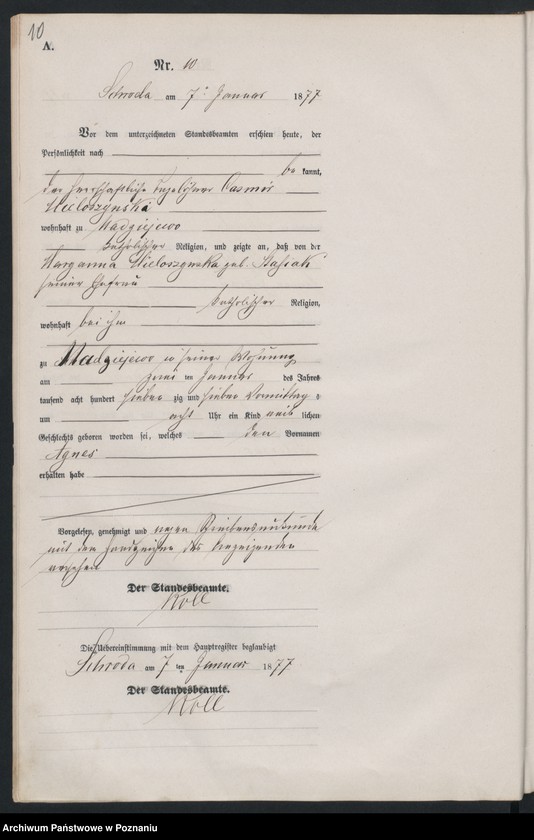 10
A.
Nr. 10
Schroda am 7ten Januar 1877
Vor dem unterzeichneten Standesbeamten erschien heute, der
Persönlichkeit nach
be kannt,
der herrschaftliche Tagelöhner Casmir
Wieloszynski
wohnhaft zu Madziejewo
katholischer Religion, und zeigte an, daß von der
Maryanna Wieloszynska geb. Stasiak
seiner Ehefrau
katholischer Religion,
wohnhaft bei ihm
zu Madziejewo in seiner Wohnung
am zwei ten Januar des Jahres
tausend acht hundert sieben zig und sieben Vormittag s
um acht Uhr ein Kind weib lichen
Geschlechts geboren worden sei, welches den Vornamen
Agnes
erhalten habe
Vorgelesen, genehmigt und wegen Schreibensunkunde
mit dem Handzeichen des Anzeigenden
versehen
Der Standesbeamte.
Roll
Die Uebereinstimmung mit dem Hauptregister beglaubigt
Schroda am 7 ten Januar 1877
Der Standesbeamte.
Roll
Archiwum Państwowe w Poznaniu